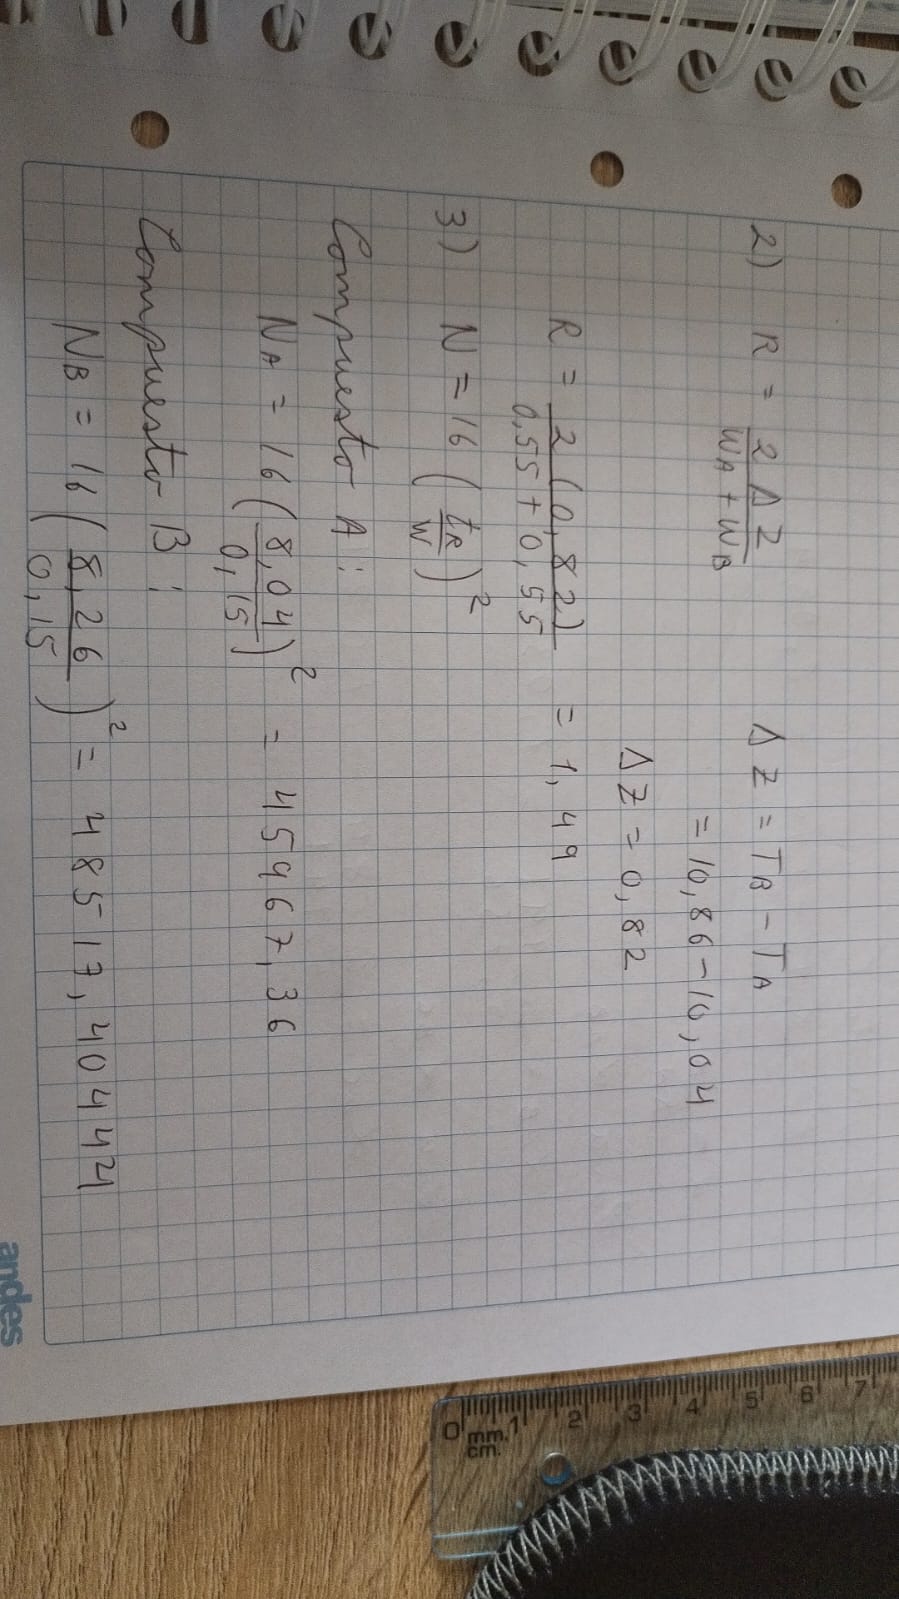 2) R = 2 ΔZ / WA + WB ΔZ = TB - TA
= 10,86 - 10,04
ΔZ = 0,82
R = 2 (0,82) / 0,55 + 0,55 = 1,49
3) N = 16 (tR / W)²
Compuesto A:
NA = 16 (8,04 / 0,15)² = 45967,36
Compuesto B:
NB = 16 (8,26 / 0,15)² = 48517,40444
andes
0 1 2 3 4 5 6 7
mm.
cm.